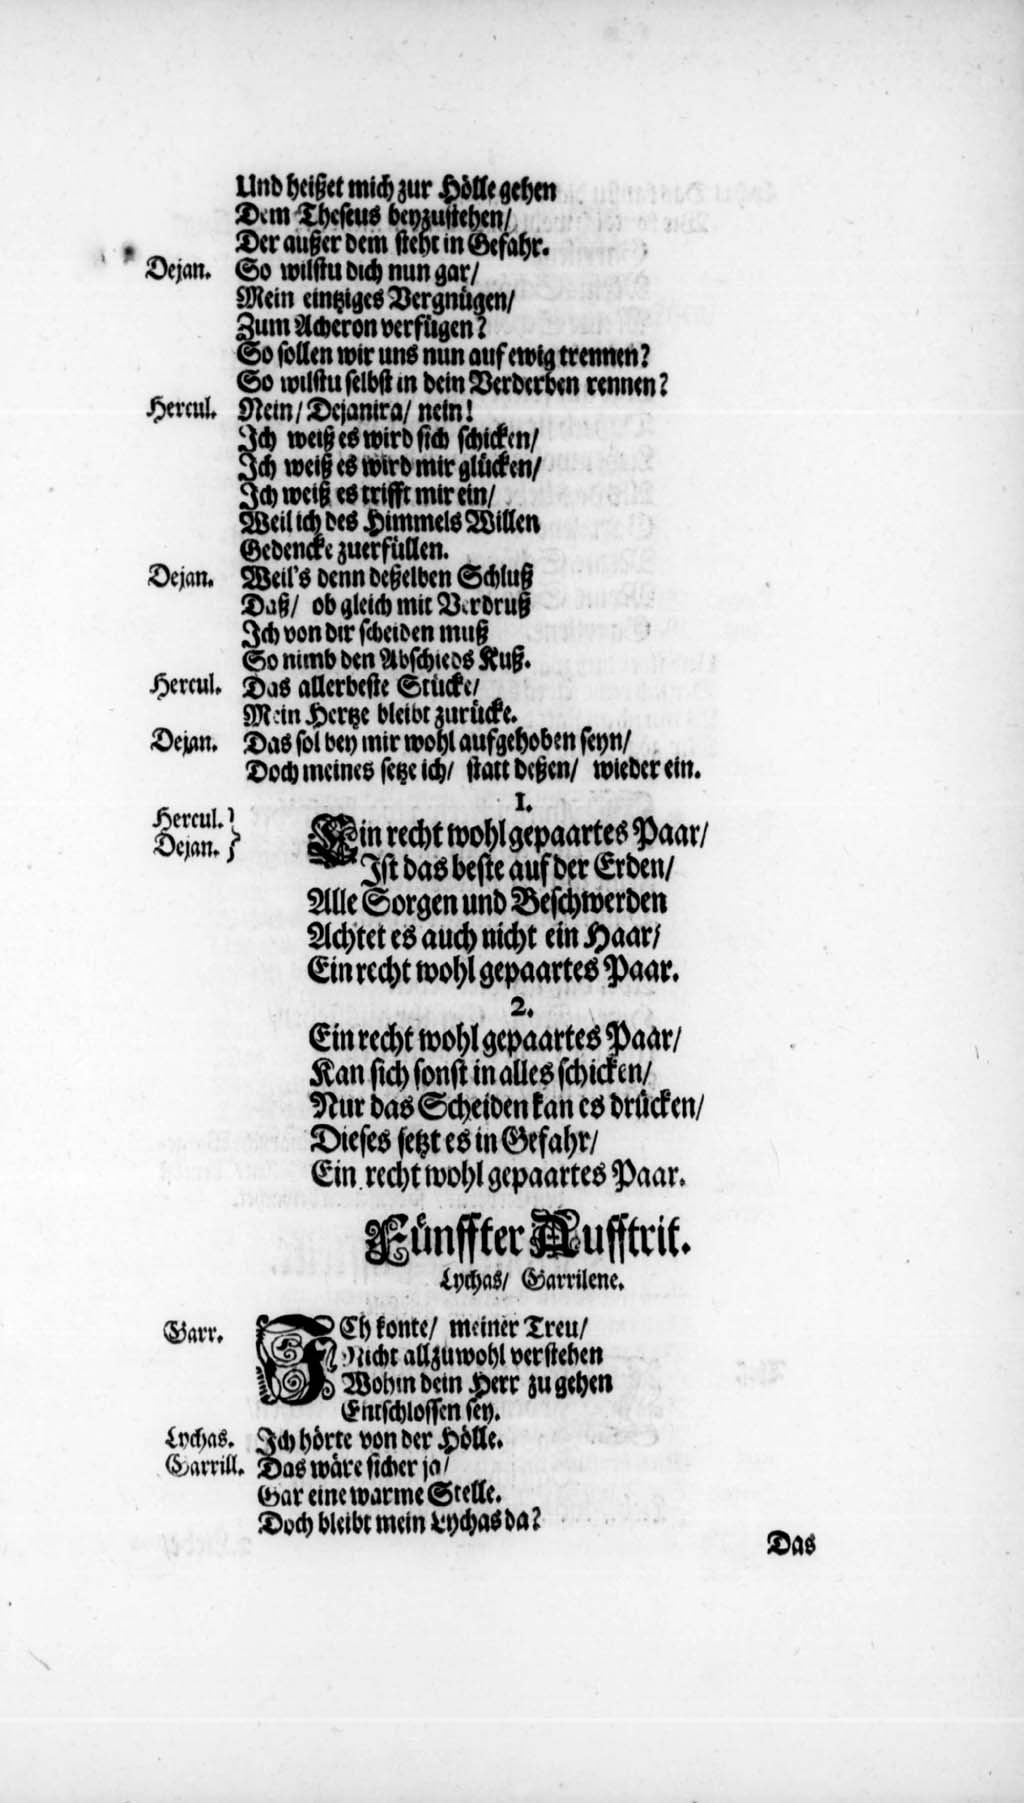 Und heißet mich zur Hölle gehen
Dem Theseus beyzustehen/
Der außer dem steht in Gefahr.
Dejan. So wilstu dich nun gar/
Mein eintziges Vergnügen/
Zum Acheron verfügen?
So sollen wir uns nun auf ewig trennen?
So wilstu selbst in dein Verderben rennen?
Hercul. Nein/ Dejanira/ nein!
Ich weiß es wird sich schicken/
Ich weiß es wird mir glücken/
Ich weiß es trifft mir ein/
Weil ich des Himmels Willen
Gedencke zuerfüllen.
Dejan. Weil's denn deßelben Schluß
Daß/ ob gleich mit Verdruß
Ich von dir scheiden muß
So nimb den Abschieds Kuß.
Hercul. Das allerbeste Stücke/
Mein Hertze bleibt zurücke.
Dejan. Das sol bey mir wohl aufgehoben seyn/
Doch meines setze ich/ statt deßen/ wieder ein.
1.
Hercul. }
Dejan. } Ein recht wohl gepaartes Paar/
Ist das beste auf der Erden/
Alle Sorgen und Beschwerden
Achtet es auch nicht ein Haar/
Ein recht wohl gepaartes Paar.
2.
Ein recht wohl gepaartes Paar/
Kan sich sonst in alles schicken/
Nur das Scheiden kan es drücken/
Dieses setzt es in Gefahr/
Ein recht wohl gepaartes Paar.
Fünffter Aufftrit.
Lychas/ Garrilene.
Garr. ICh konte/ meiner Treu/
Nicht allzuwohl verstehen
Wohin dein Herr zu gehen
Entschlossen sey.
Lychas. Ich hörte von der Hölle.
Garrill. Das wäre sicher ja/
Gar eine warme Stelle.
Doch bleibt mein Lychas da?
Das